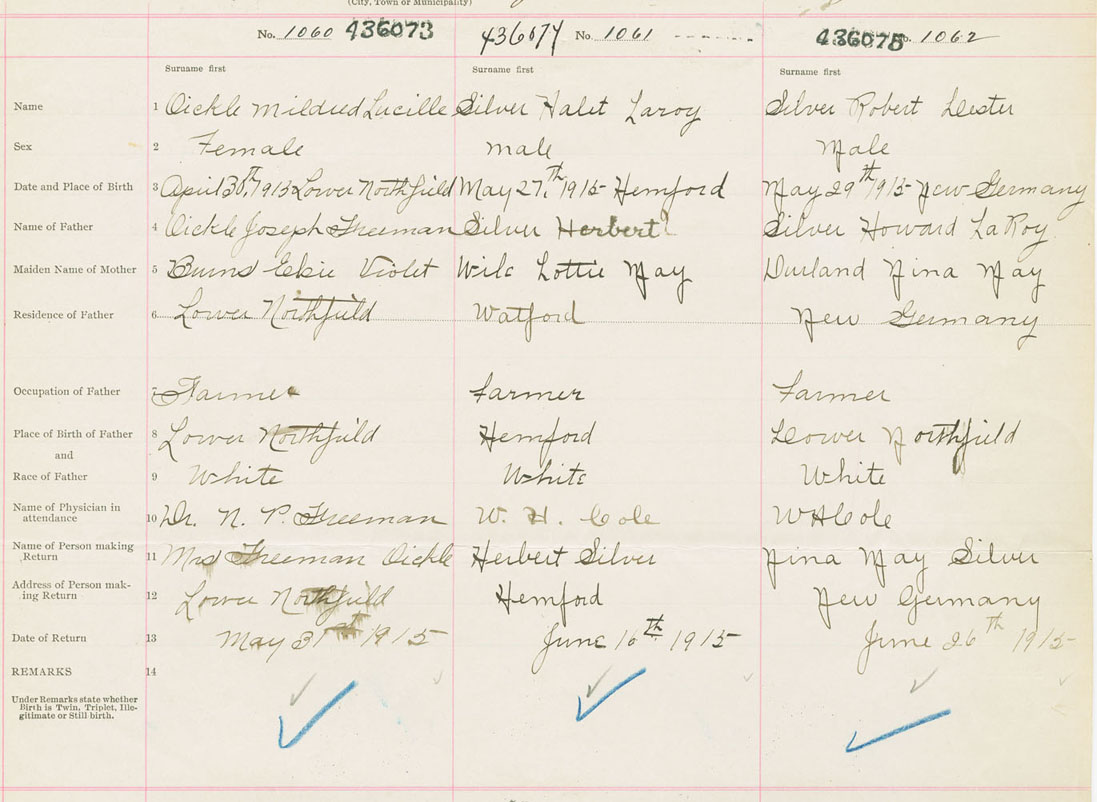 (City, Town or Municipality)
No. 1060 436073 436074 No. 1061 436075 No. 1062
Surname first Surname first Surname first
Name 1 Oickle Mildred Lucille Silver Halet Laroy Silver Robert Lester
Sex 2 Female Male Male
Date and Place of Birth 3 April 30th, 1915 Lower Northfield May 27th, 1915 Hemford May 29th 1915 New Germany
Name of Father 4 Oickle Joseph Freeman Silver Herbert Silver Howard LaRoy
Maiden Name of Mother 5 Burns Elsie Violet Wile Lottie May Durland Nina May
Residence of Father 6 Lower Northfield Watford New Germany
Occupation of Father 7 Farmer Farmer Farmer
Place of Birth of Father 8 Lower Northfield Hemford Lower Northfield
and
Race of Father 9 White White White
Name of Physician in attendance 10 Dr. N. P. Freeman W. H. Cole W H Cole
Name of Person making Return 11 Mrs Freeman Oickle Herbert Silver Nina May Silver
Address of Person mak-
ing Return 12 Lower Northfield Hemford New Germany
Date of Return 13 May 31st 1915 June 16th 1915 June 26th 1915
REMARKS 14
Under Remarks state whether
Birth is Twin, Triplet, Ille-
gitimate or Still birth.